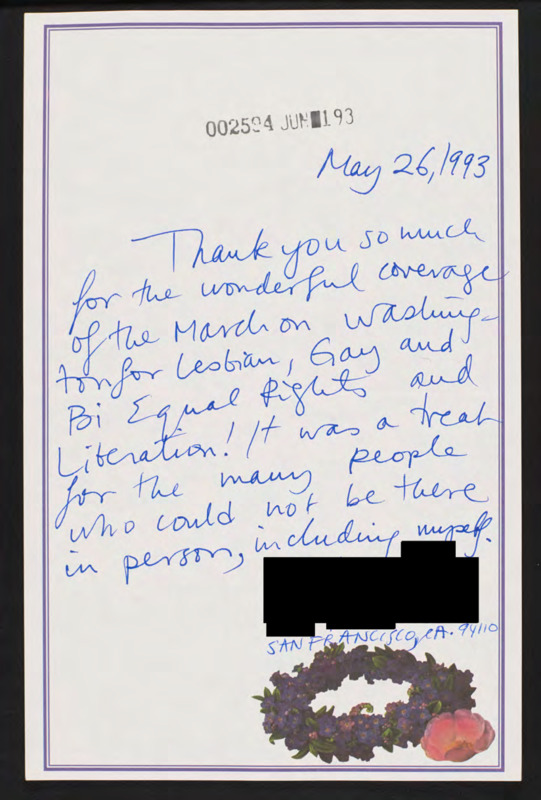 002594 JUN 193
May 26, 1993
Thank you so much
for the wonderful coverage
of the March on Washing-
ton for Lesbian, Gay and
Bi Equal Rights and
Liberation! It was a treat
for the many people
who could not be there
in person, including myself.
SAN FRANCISCO, CA. 94110